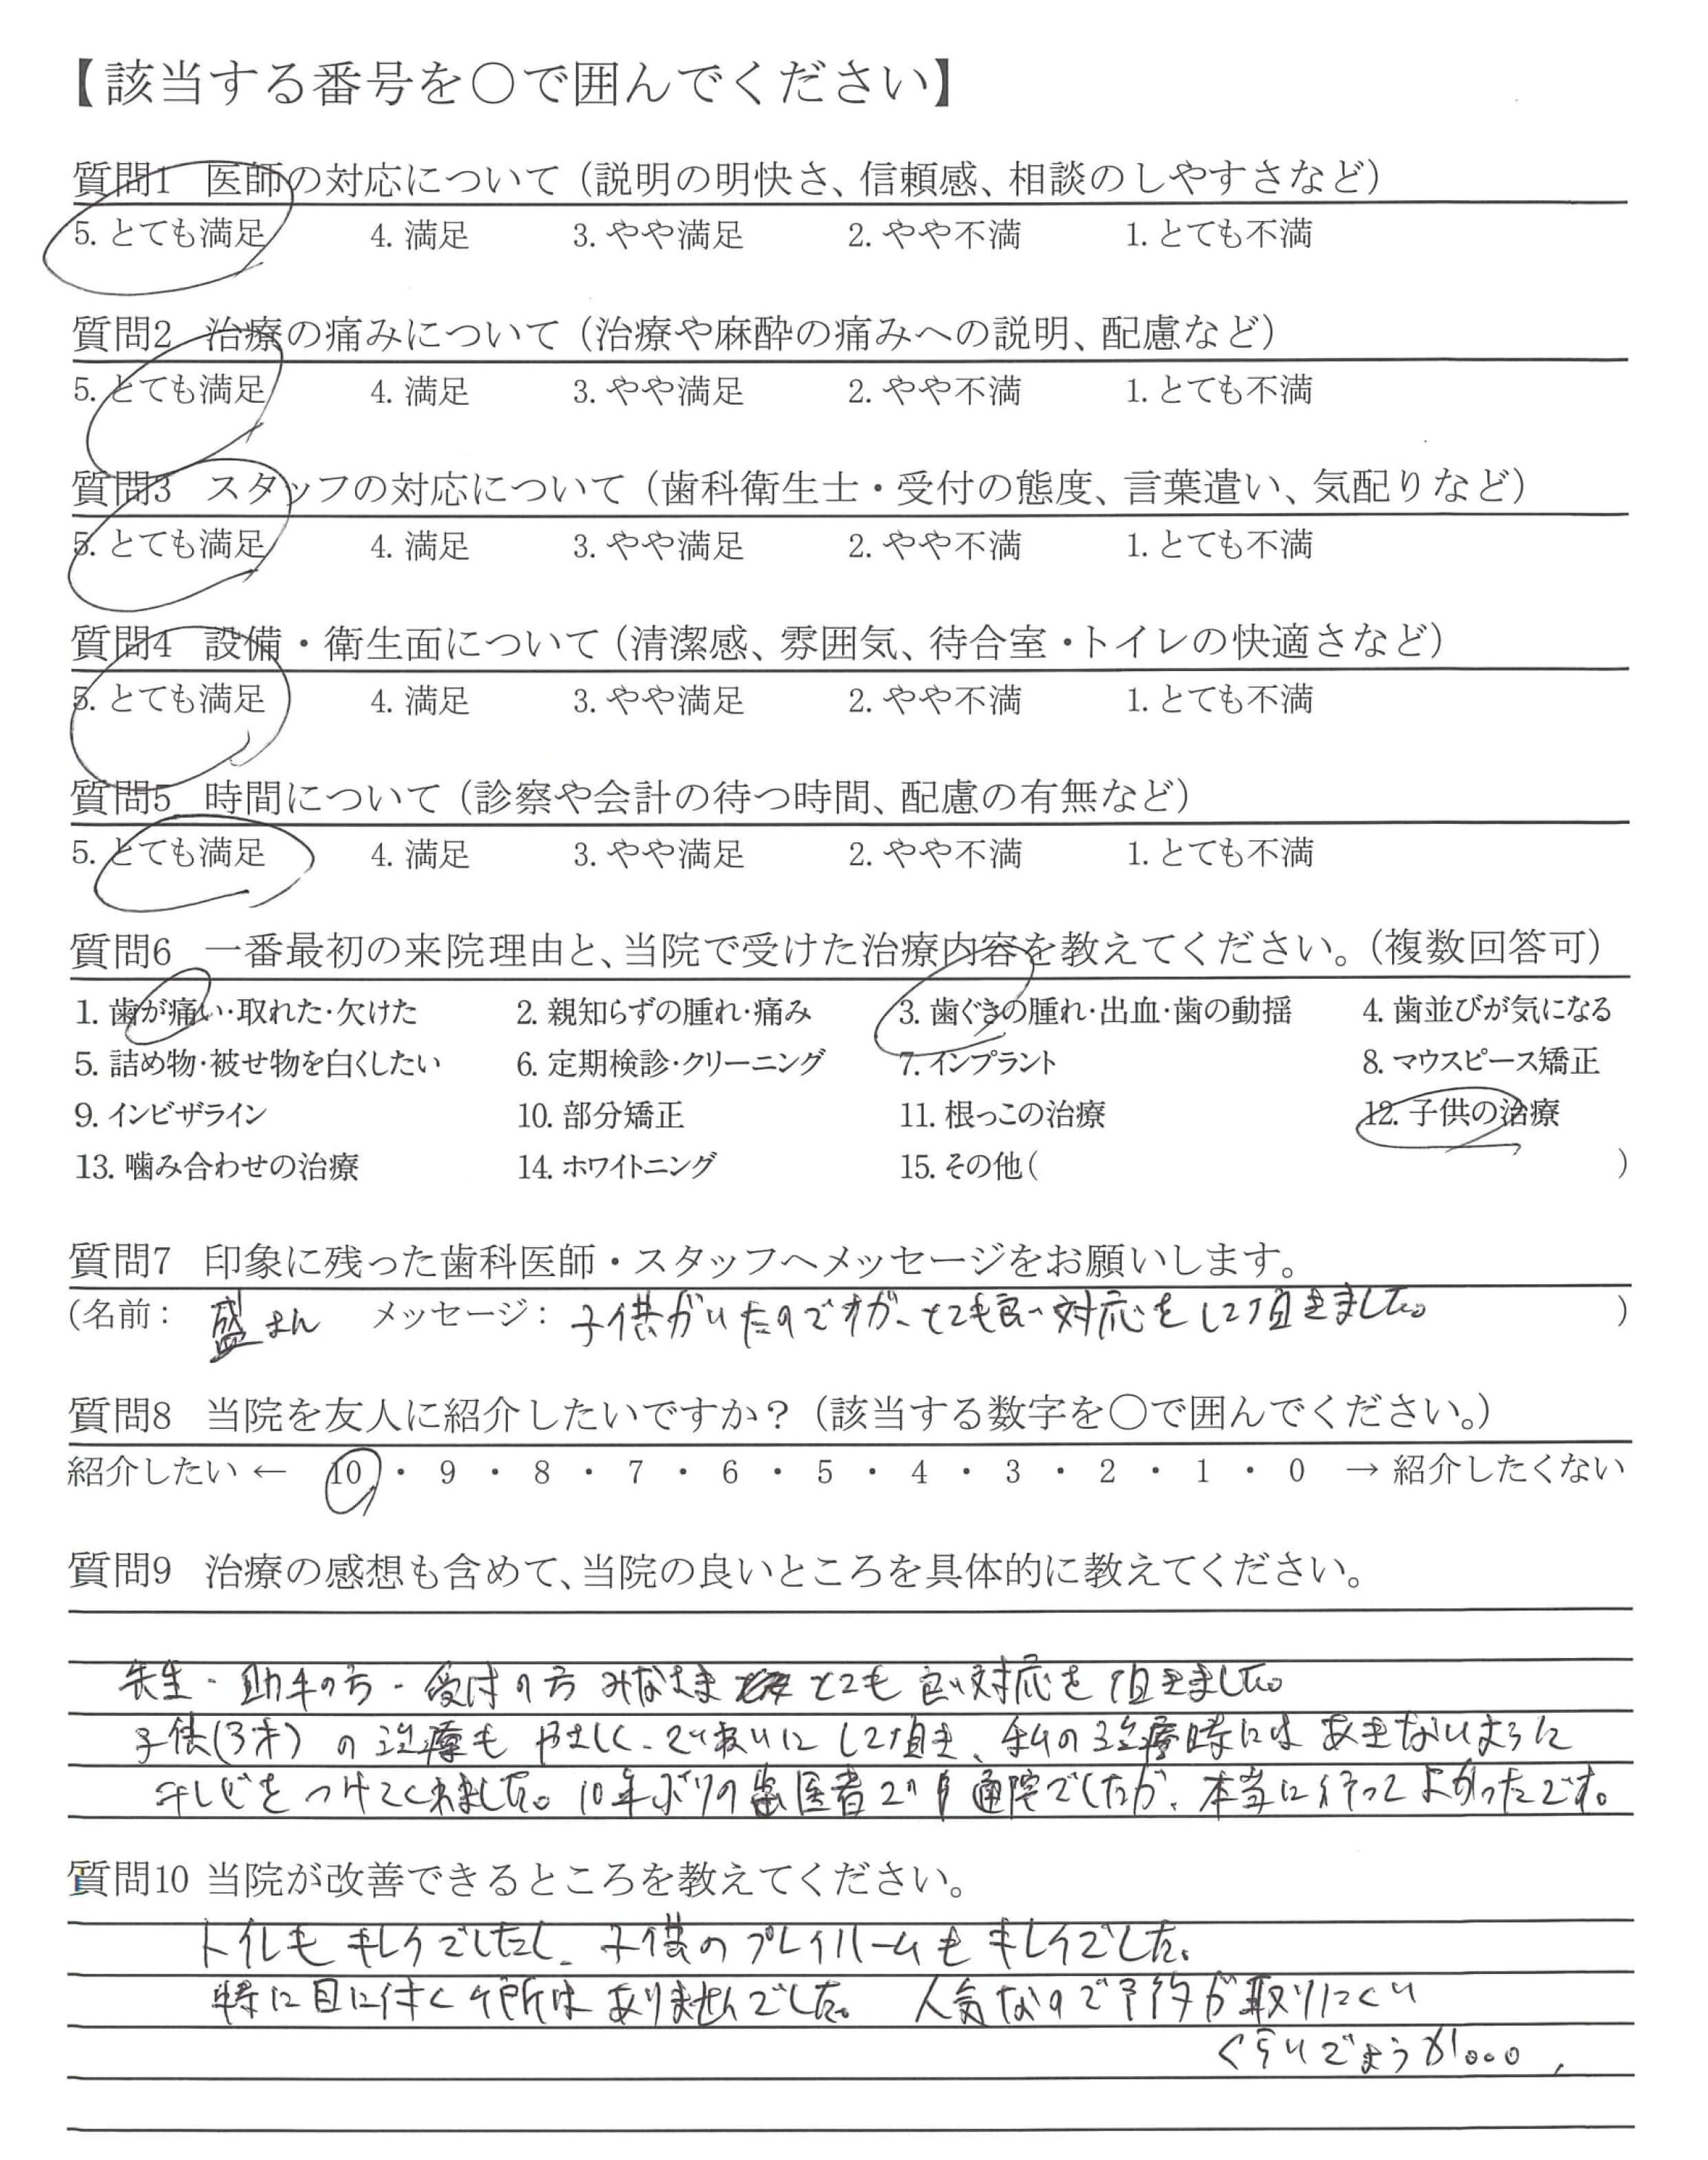 【該当する番号を○で囲んでください】
質問1 医師の対応について（説明の明快さ、信頼感、相談のしやすさなど）
5. とても満足 4. 満足 3. やや満足 2. やや不満 1. とても不満
質問2 治療の痛みについて（治療や麻酔の痛みへの説明、配慮など）
5. とても満足 4. 満足 3. やや満足 2. やや不満 1. とても不満
質問3 スタッフの対応について（歯科衛生士・受付の態度、言葉遣い、気配りなど）
5. とても満足 4. 満足 3. やや満足 2. やや不満 1. とても不満
質問4 設備・衛生面について（清潔感、雰囲気、待合室・トイレの快適さなど）
5. とても満足 4. 満足 3. やや満足 2. やや不満 1. とても不満
質問5 時間について（診察や会計の待つ時間、配慮の有無など）
5. とても満足 4. 満足 3. やや満足 2. やや不満 1. とても不満
質問6 一番最初の来院理由と、当院で受けた治療内容を教えてください。（複数回答可）
1. 歯が痛い・取れた・欠けた 2. 親知らずの腫れ・痛み 3. 歯ぐきの腫れ・出血・歯の動揺 4. 歯並びが気になる
5. 詰め物・被せ物を白くしたい 6. 定期検診・クリーニング 7. インプラント 8. マウスピース矯正
9. インビザライン 10. 部分矯正 11. 根っこの治療 12. 子供の治療
13. 噛み合わせの治療 14. ホワイトニング 15. その他（ ）
質問7 印象に残った歯科医師・スタッフへメッセージをお願いします。
（名前： 盛さん メッセージ： 子供がいたのですが、とても良い対応をして頂きました。 ）
質問8 当院を友人に紹介したいですか？（該当する数字を○で囲んでください。）
紹介したい ← 10 ・ 9 ・ 8 ・ 7 ・ 6 ・ 5 ・ 4 ・ 3 ・ 2 ・ 1 ・ 0 → 紹介したくない
質問9 治療の感想も含めて、当院の良いところを具体的に教えてください。
先生・助手の方・受付の方 みなさま とても良い対応を頂きました。
子供(3才)の治療も やさしく、ていねいにして頂き、私の治療時には あきないように
テレビをつけてくれました。10年ぶりの歯医者 通院でしたが、本当に行ってよかったです。
質問10 当院が改善できるところを教えてください。
トイレも キレイでしたし、子供のプレイルームも キレイでした。
特に目に付く ヶ所は ありませんでした。 人気なので予約が取りにくい
くらいでしょうか。。。